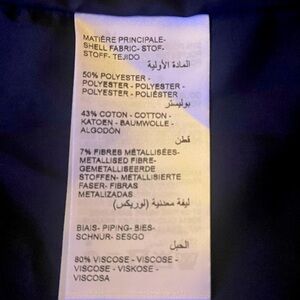 MATIÈRE PRINCIPALE-
SHELL FABRIC- STOF-
STOFF- TEJIDO
المادة الأولية
50% POLYESTER -
POLYESTER - POLYESTER -
POLYESTER - POLIÉSTER
بوليستر
43% COTON - COTTON -
KATOEN - BAUMWOLLE -
ALGODÓN
قطن
7% FIBRES MÉTALLISÉES-
METALLISED FIBRE-
GEMETALLISEERDE
STOFFEN- METALLISIERTE
FASER- FIBRAS
METALIZADAS
ليفة معدنية (لوريكس)
BIAIS- PIPING- BIES-
SCHNUR- SESGO
الحبل
80% VISCOSE - VISCOSE -
VISCOSE - VISKOSE -
VISCOSA